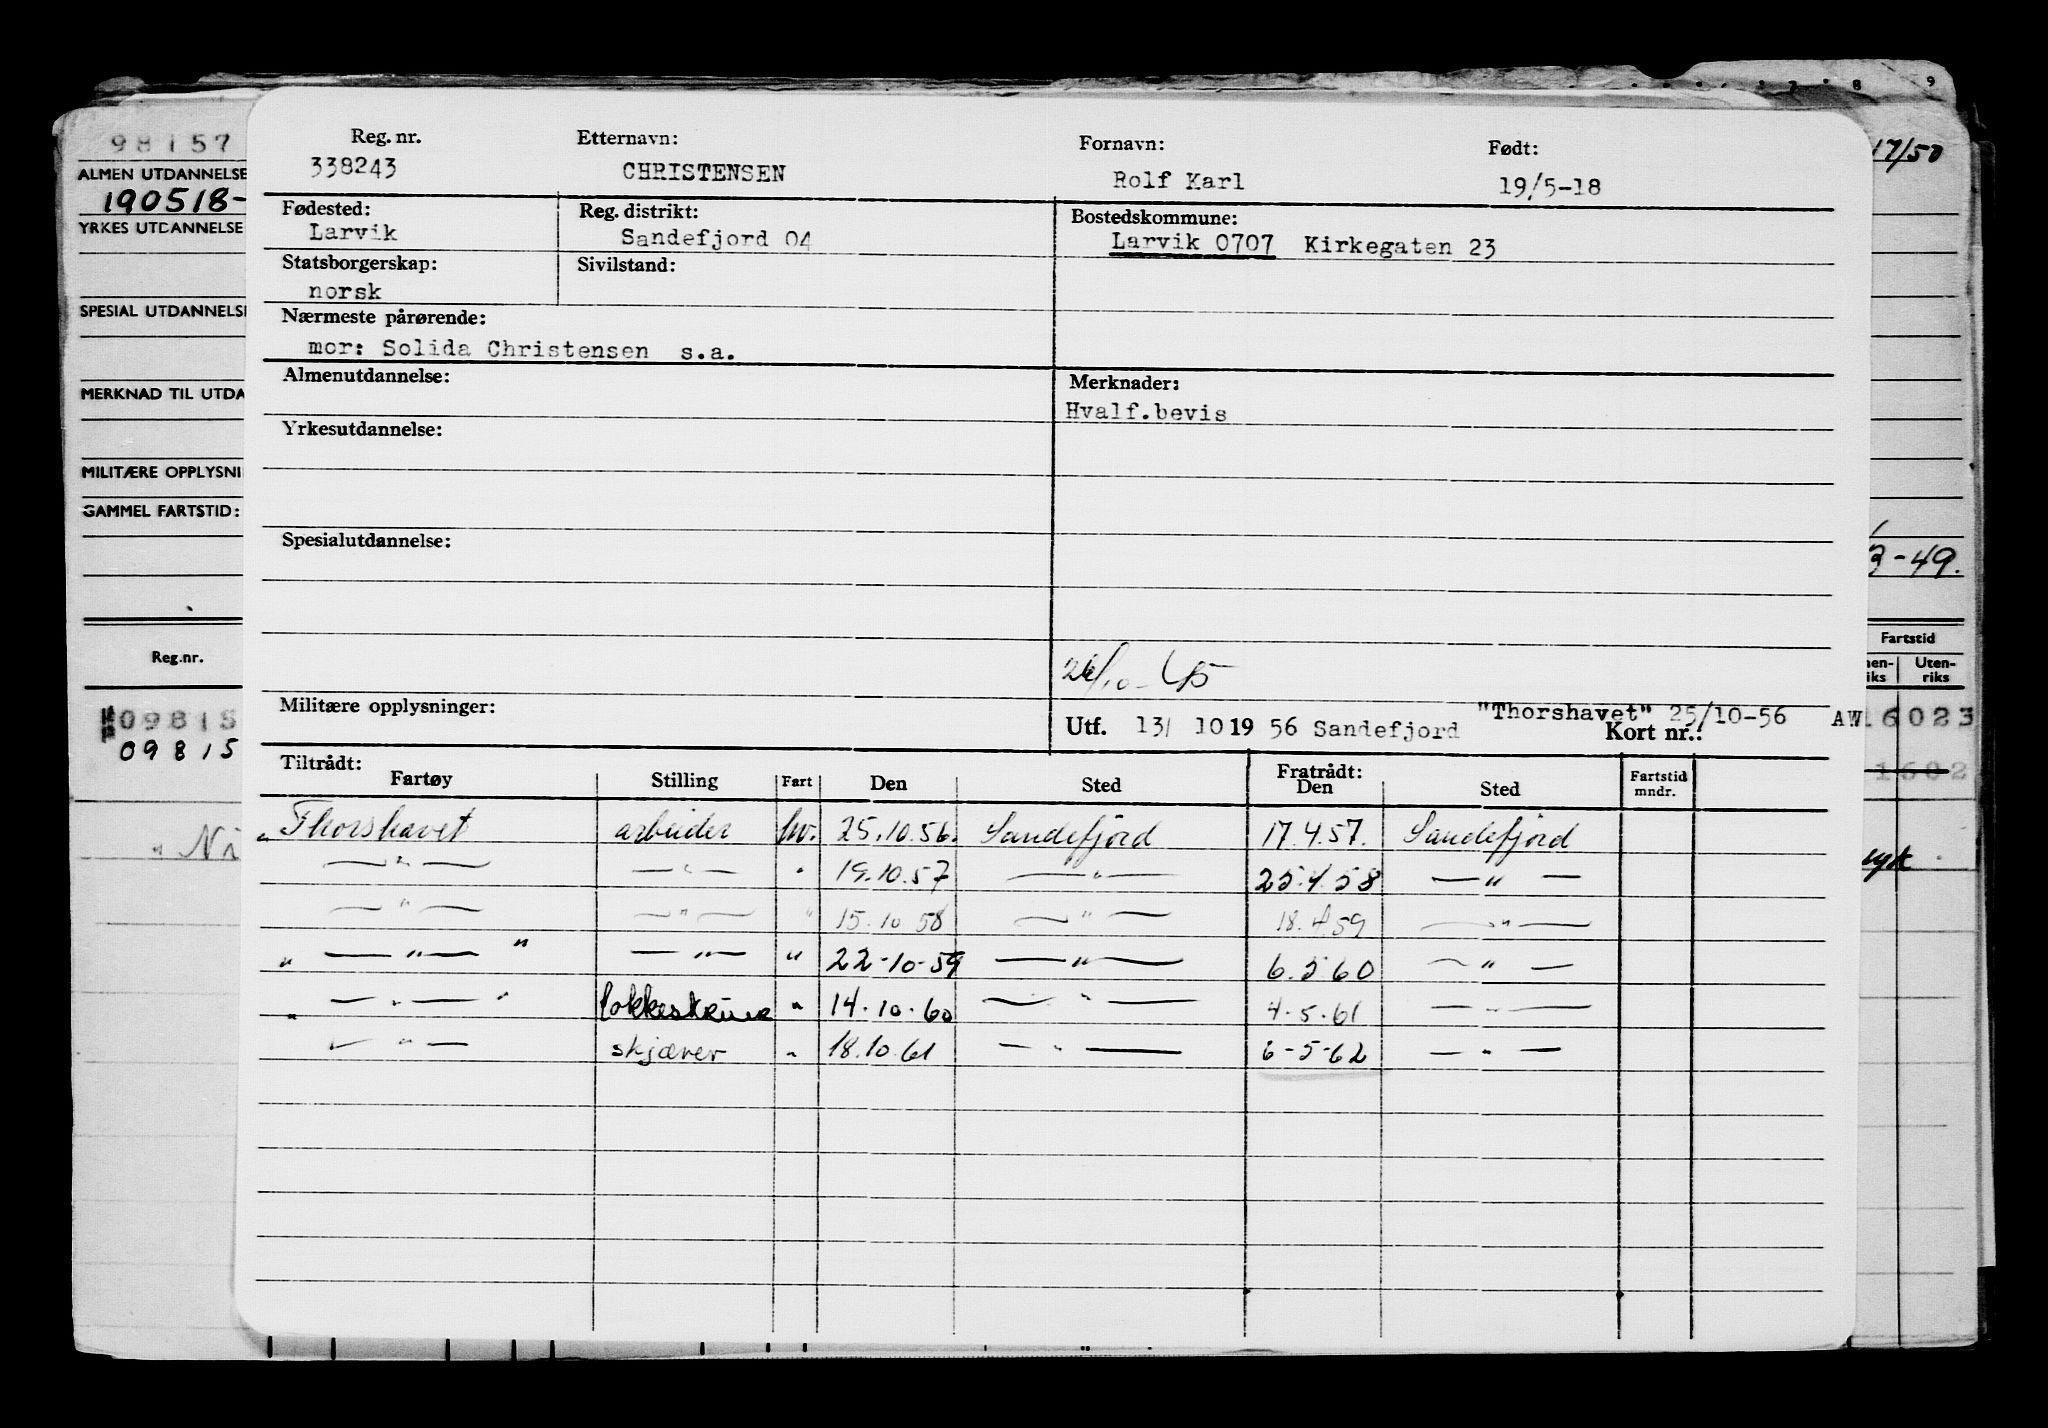 7 8 9
98157
ALMEN UTDANNELSE
190518-
YRKES UTDANNELSE
SPESIAL UTDANNELSE
MERKNAD TIL UTDA
MILITÆRE OPPLYSNI
GAMMEL FARTSTID:
Reg.nr.
09815
09815
Ni
Reg. nr. Etternavn: Fornavn: Født:
338243 CHRISTENSEN Rolf Karl 19/5-18
Fødested: Reg. distrikt: Bostedskommune:
Larvik Sandefjord 04 Larvik 0707 Kirkegaten 23
Statsborgerskap: Sivilstand:
norsk
Nærmeste pårørende:
mor: Solida Christensen s.a.
Almenutdannelse: Merknader:
Hvalf.bevis
Yrkesutdannelse:
Spesialutdannelse:
Militære opplysninger:
"Thorshavet" 25/10-56
Utf. 13/ 1019 56 Sandefjord Kort nr.:
Tiltrådt: Fratrådt:
Fartøy Stilling Fart Den Sted Den Sted Fartstid mndr.
" Thorshavet arbeider hv. 25.10.56. Sandefjord 17.4.57. Sandefjord
— " — — " — " 19.10.57 — " — 25.4.58 — " —
— " — — " — " 15.10 58 — " — 18.4 59 — " —
" — " — " — " — " 22-10-59 — " — 6.5 60 — " —
" — " — " " 14.10.60 — " — 4.5.61 — " —
— " — skjærer " 18.10.61 — " — 6-5-62 — " —
17/50
3-49.
Fartstid
nen-
iks
Uten-
riks
AW16023
1602